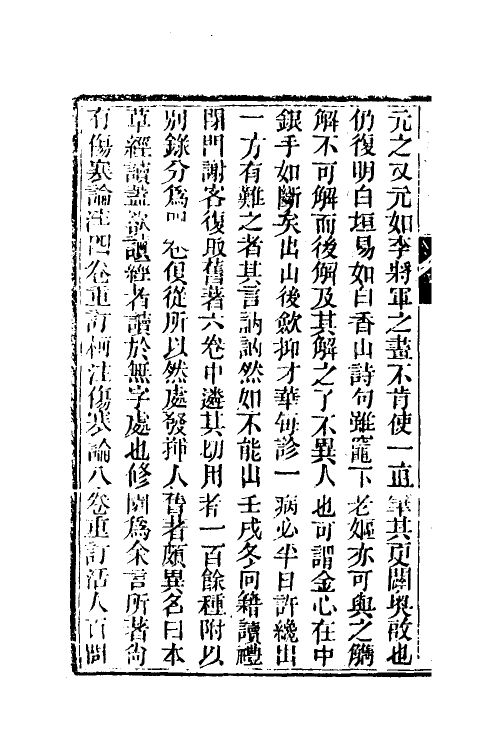 元之又元如李將軍之畫不肯使一直筆其更闢奥敵也
仍復明白坦易如白香山詩句雖竈下老嫗亦可與之觴
解不可解而後解及其解之了不異人也可謂金心在中
銀手如斷矣出山後歛抑才華每診一病必半日許纔出
一方有難之者其言訥訥然如不能出壬戌冬回籍讀禮
閉門謝客復取舊著六卷中遴其切用者一百餘種附以
別錄分爲四卷俱從所以然處發揮人舊著頗異名曰本
草經讀蓋欲讀經者讀於無字處也修園爲余言所著尙
有傷寒論注四卷重訂柯注傷寒論八卷重訂活人百問